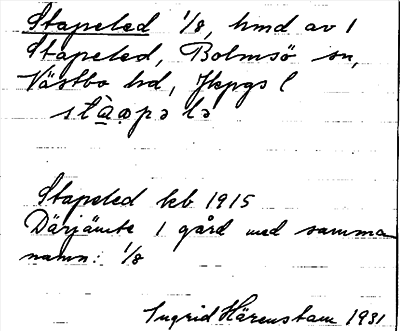 Stapeled 1/8, hmd av 1
Stapeled, Bolmsö sn,
Västbo hd, Jkpgs l
stà̱ǫpə lə
Stapeled kb 1915
Därjämte 1 gård med samma
namn: 1/8
Ingrid Härenstam 1931